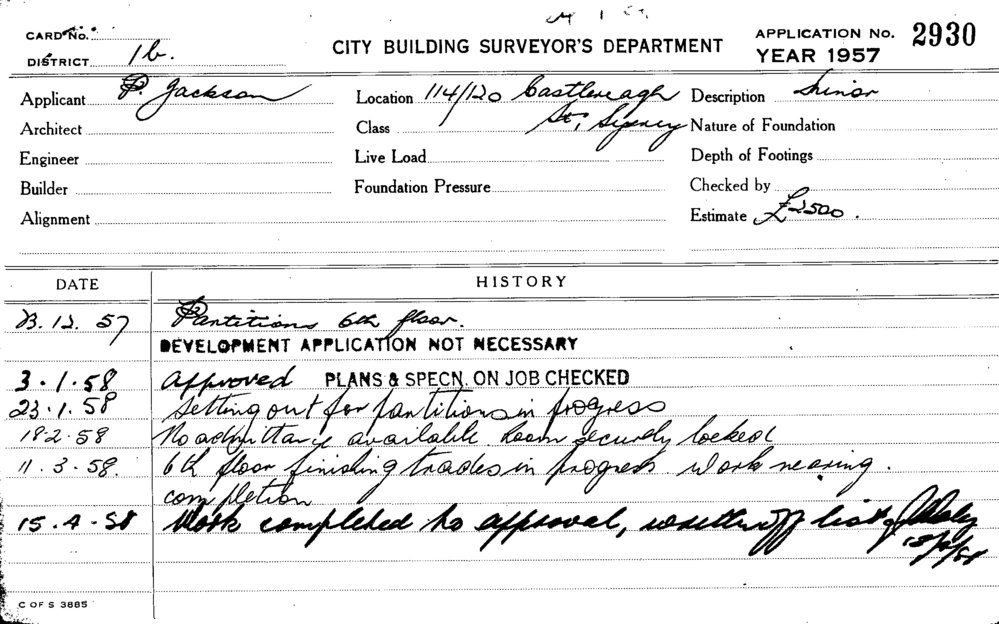 CARD No.
CITY BUILDING SURVEYOR'S DEPARTMENT
APPLICATION No. 2930
YEAR 1957
DISTRICT 1b.
Applicant P. Jackson
Location 114/120 Castlereagh
St, Sydney
Description Minor
Architect
Class
Nature of Foundation
Engineer
Live Load
Depth of Footings
Builder
Foundation Pressure
Checked by
Alignment
Estimate £2500.
DATE
HISTORY
23.12.57 Partitions 6th floor.
DEVELOPMENT APPLICATION NOT NECESSARY
3.1.58 Approved PLANS & SPECN. ON JOB CHECKED
23.1.58 Setting out for partitions in progress
18-2-58 No admittance available. Room securely locked
11.3.58. 6th floor finishing trades in progress. Work nearing.
completion
15.4-58 Work completed to approval, written off list
15/4/58
C OF S 3885